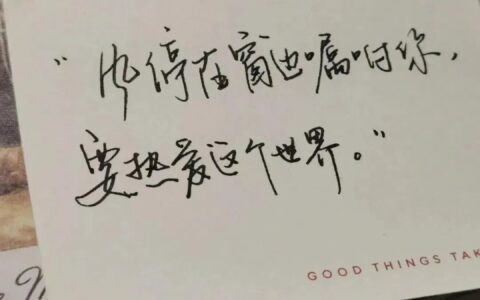 “风停在窗边嘱咐你,
要热爱这个世界。”
GOOD THINGS TAK